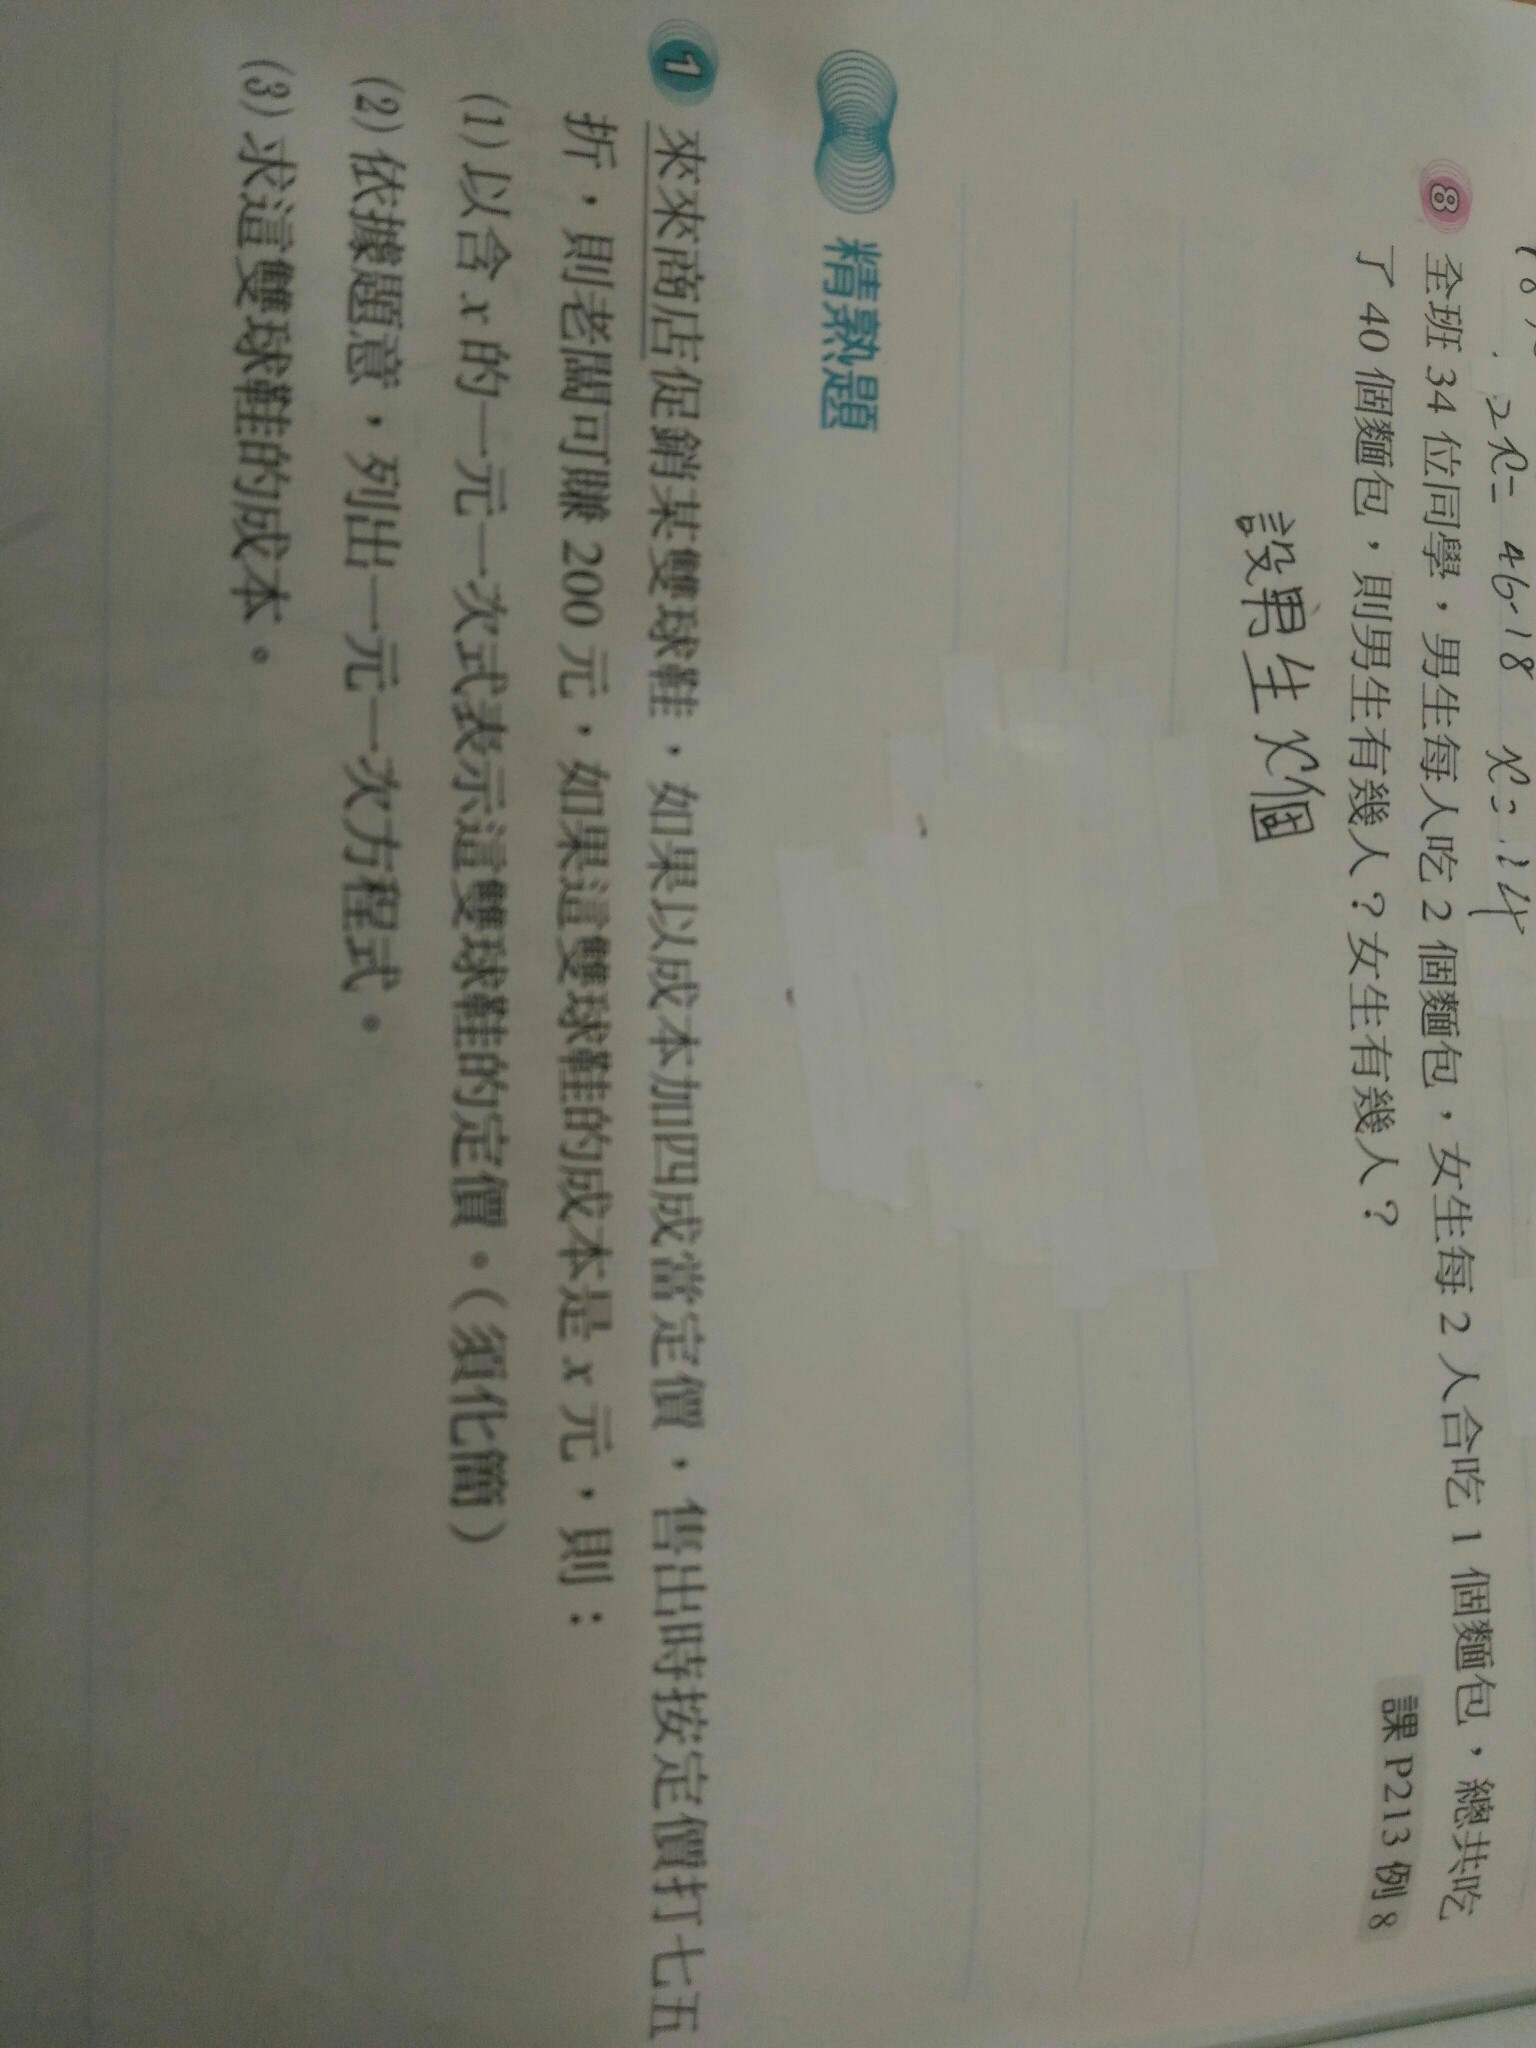 2x=46-18 x=14
8 全班 34 位同學，男生每人吃 2 個麵包，女生每 2 人合吃 1 個麵包，總共吃
了 40 個麵包，則男生有幾人？女生有幾人？
課 P213 例 8
設男生x個
精熟題
1 來來商店促銷某雙球鞋，如果以成本加四成當定價，售出時按定價打七五
折，則老闆可賺 200 元，如果這雙球鞋的成本是 x 元，則：
(1) 以含 x 的一元一次式表示這雙球鞋的定價。(須化簡)
(2) 依據題意，列出一元一次方程式。
(3) 求這雙球鞋的成本。